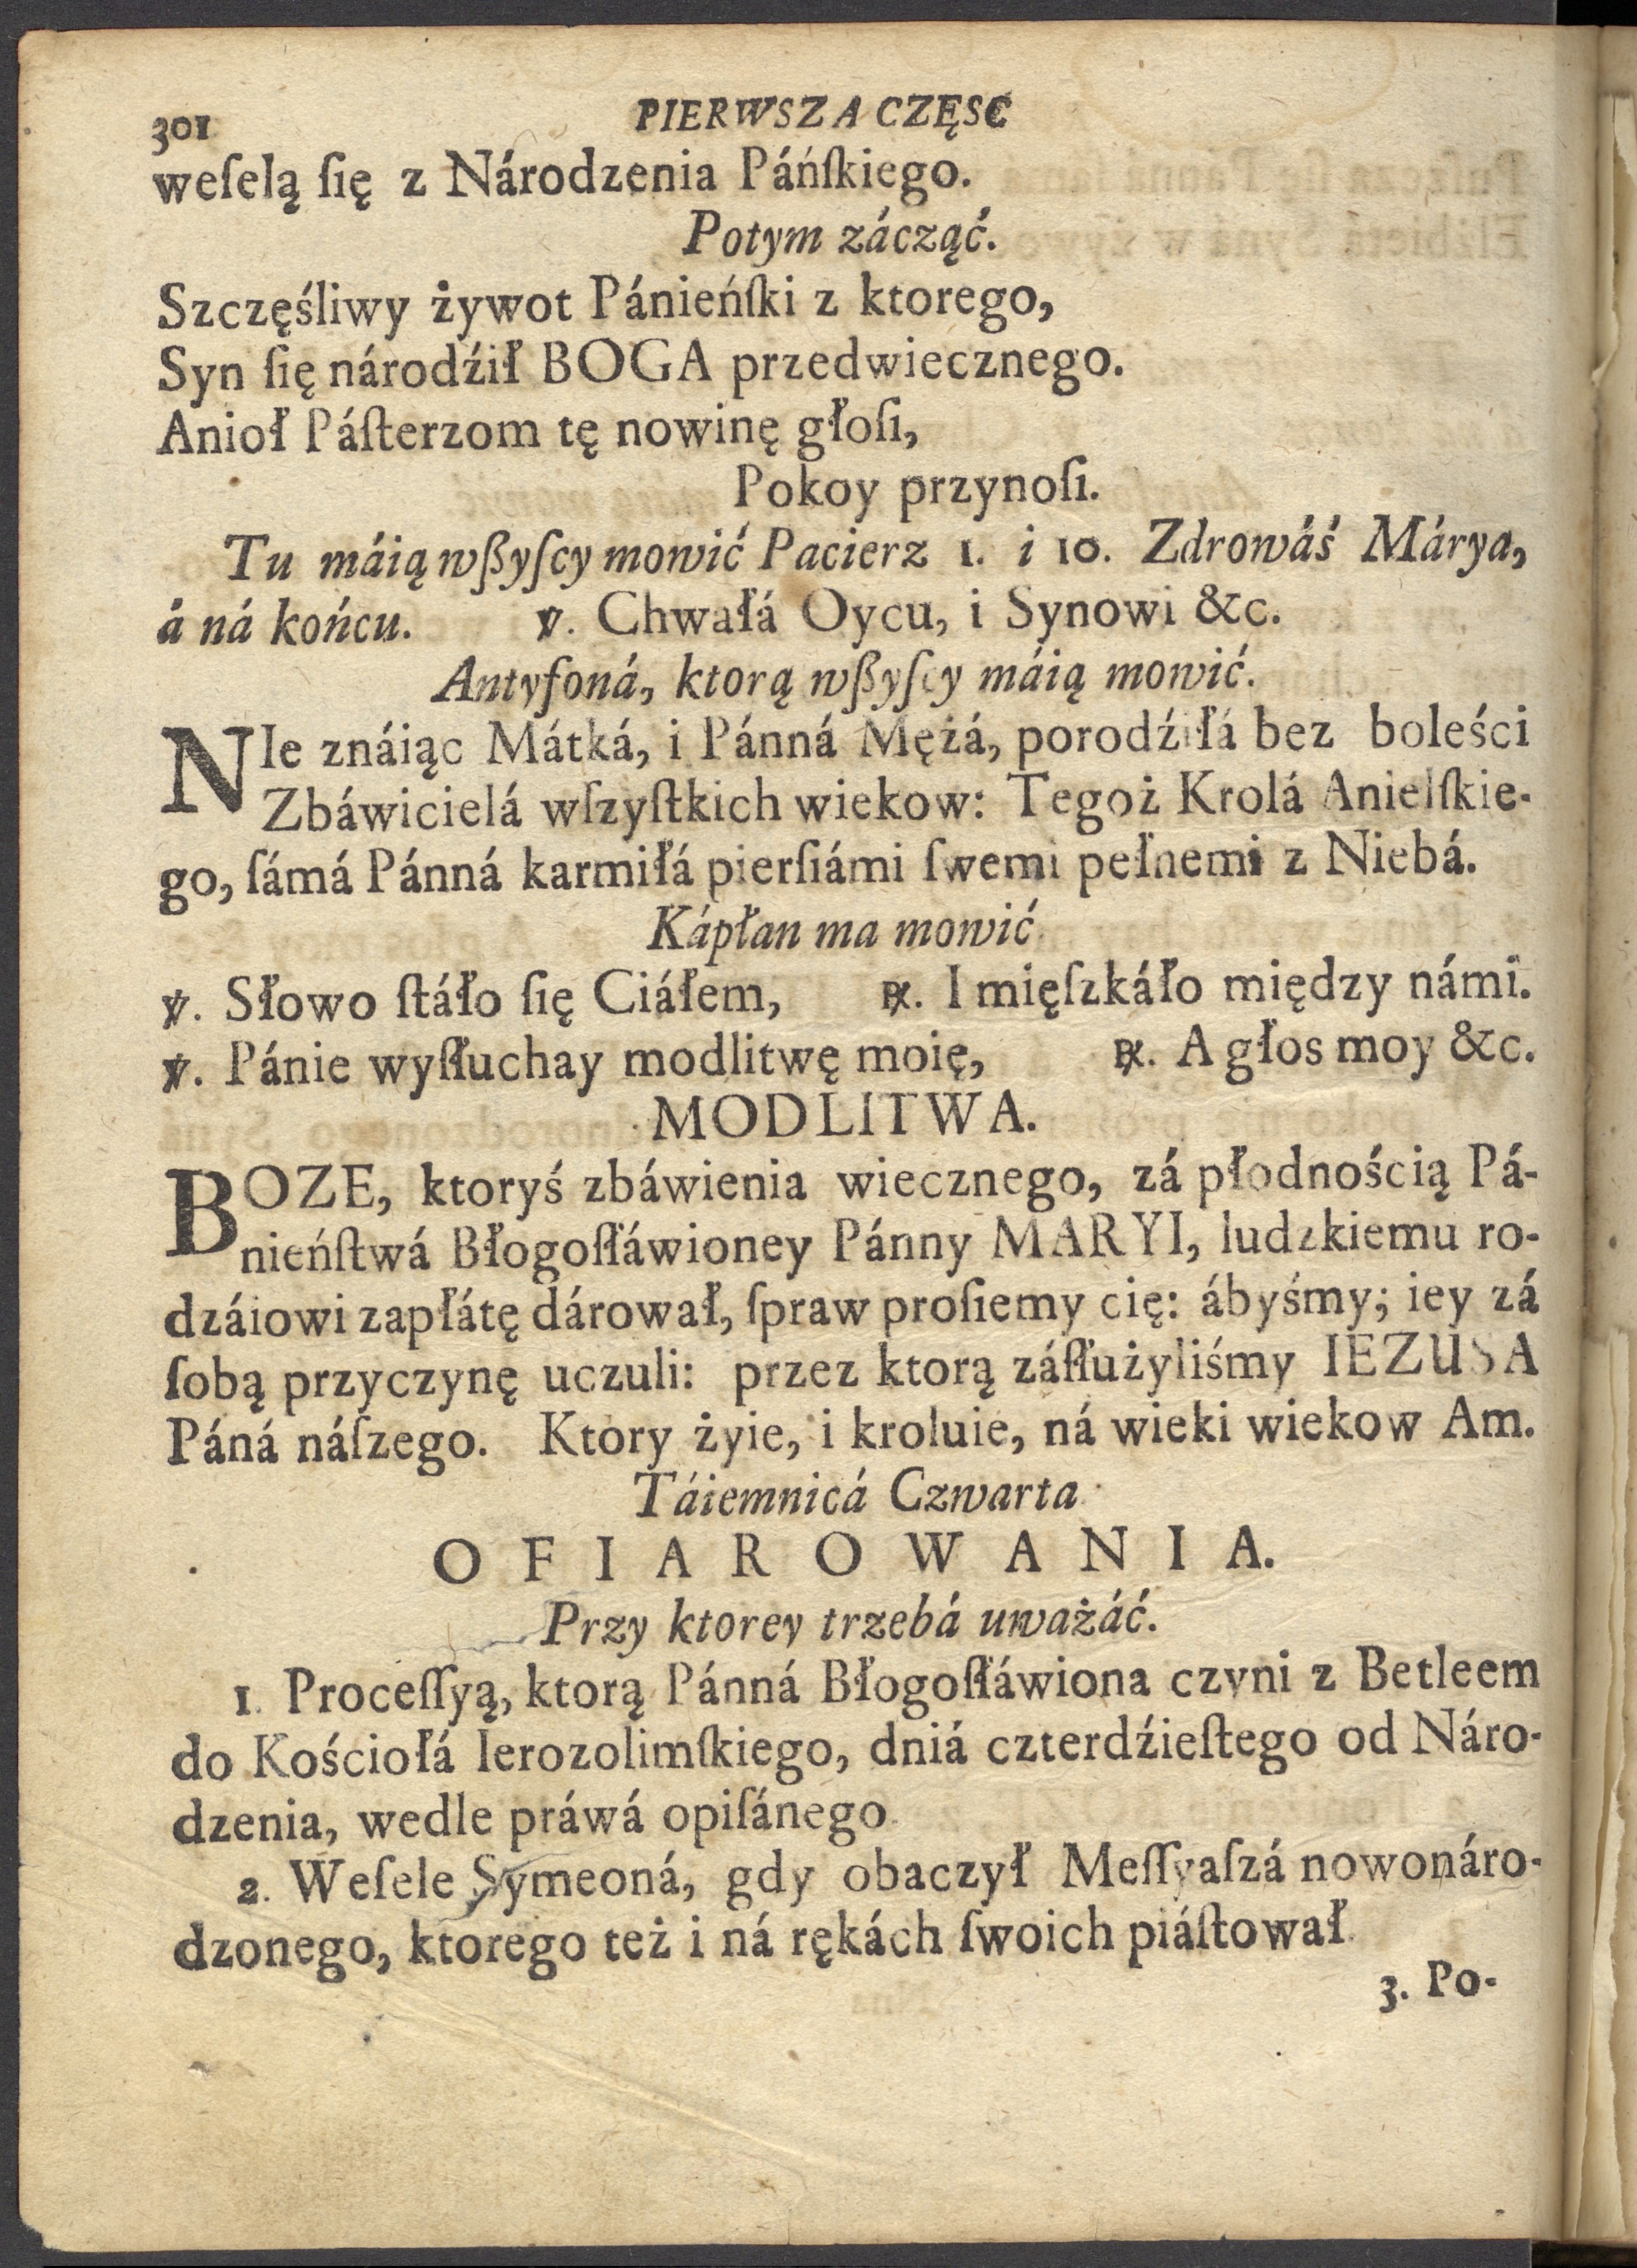 301 PIERWSZA CZĘSC
weſelą ſię z Národzenia Páńſkiego.
Potym zácząć.
Szczęśliwy żywot Pánieńſki z ktorego,
Syn ſię národźił BOGA przedwiecznego.
Anioł Páſterzom tę nowinę głoſi,
Pokoy przynoſi.
Tu máią wßyſcy mowić Pacierz 1. i 10. Zdrowáś Márya,
á ná końcu. ℣. Chwałá Oycu, i Synowi &c.
Antyfoná, ktorą wßyſcy máią mowić.
NIe znáiąc Mátká, i Pánná Mężá, porodźiłá bez boleści
Zbáwicielá wſzyſtkich wiekow: Tegoż Krolá Anielſkie-
go, ſámá Pánná karmiłá pierſiámi ſwemi pełnemi z Niebá.
Kápłan ma mowić
℣. Słowo ſtáło ſię Ciáłem, ℟. I mięſzkáło między námi.
℣. Pánie wyſłuchay modlitwę moię, ℟. A głos moy &c.
MODLITWA.
BOZE, ktoryś zbáwienia wiecznego, zá płodnością Pá-
nieńſtwá Błogoſłáwioney Pánny MARYI, ludzkiemu ro-
dzáiowi zapłátę dárował, ſpraw proſiemy cię: ábyśmy; iey zá
ſobą przyczynę uczuli: przez ktorą záſłużyliśmy IEZUSA
Páná náſzego. Ktory żyie, i kroluie, ná wieki wiekow Am.
Táiemnicá Czwarta
OFIAROWANIA.
Przy ktorey trzebá uważáć.
1. Proceſſyą, ktorą Pánná Błogoſłáwiona czyni z Betleem
do Kościołá Ierozolimſkiego, dniá czterdźieſtego od Náro-
dzenia, wedle práwá opiſánego
2. Weſele Symeoná, gdy obaczył Meſſyaſzá nowonáro-
dzonego, ktorego też i ná rękách ſwoich piáſtował.
3. Po-